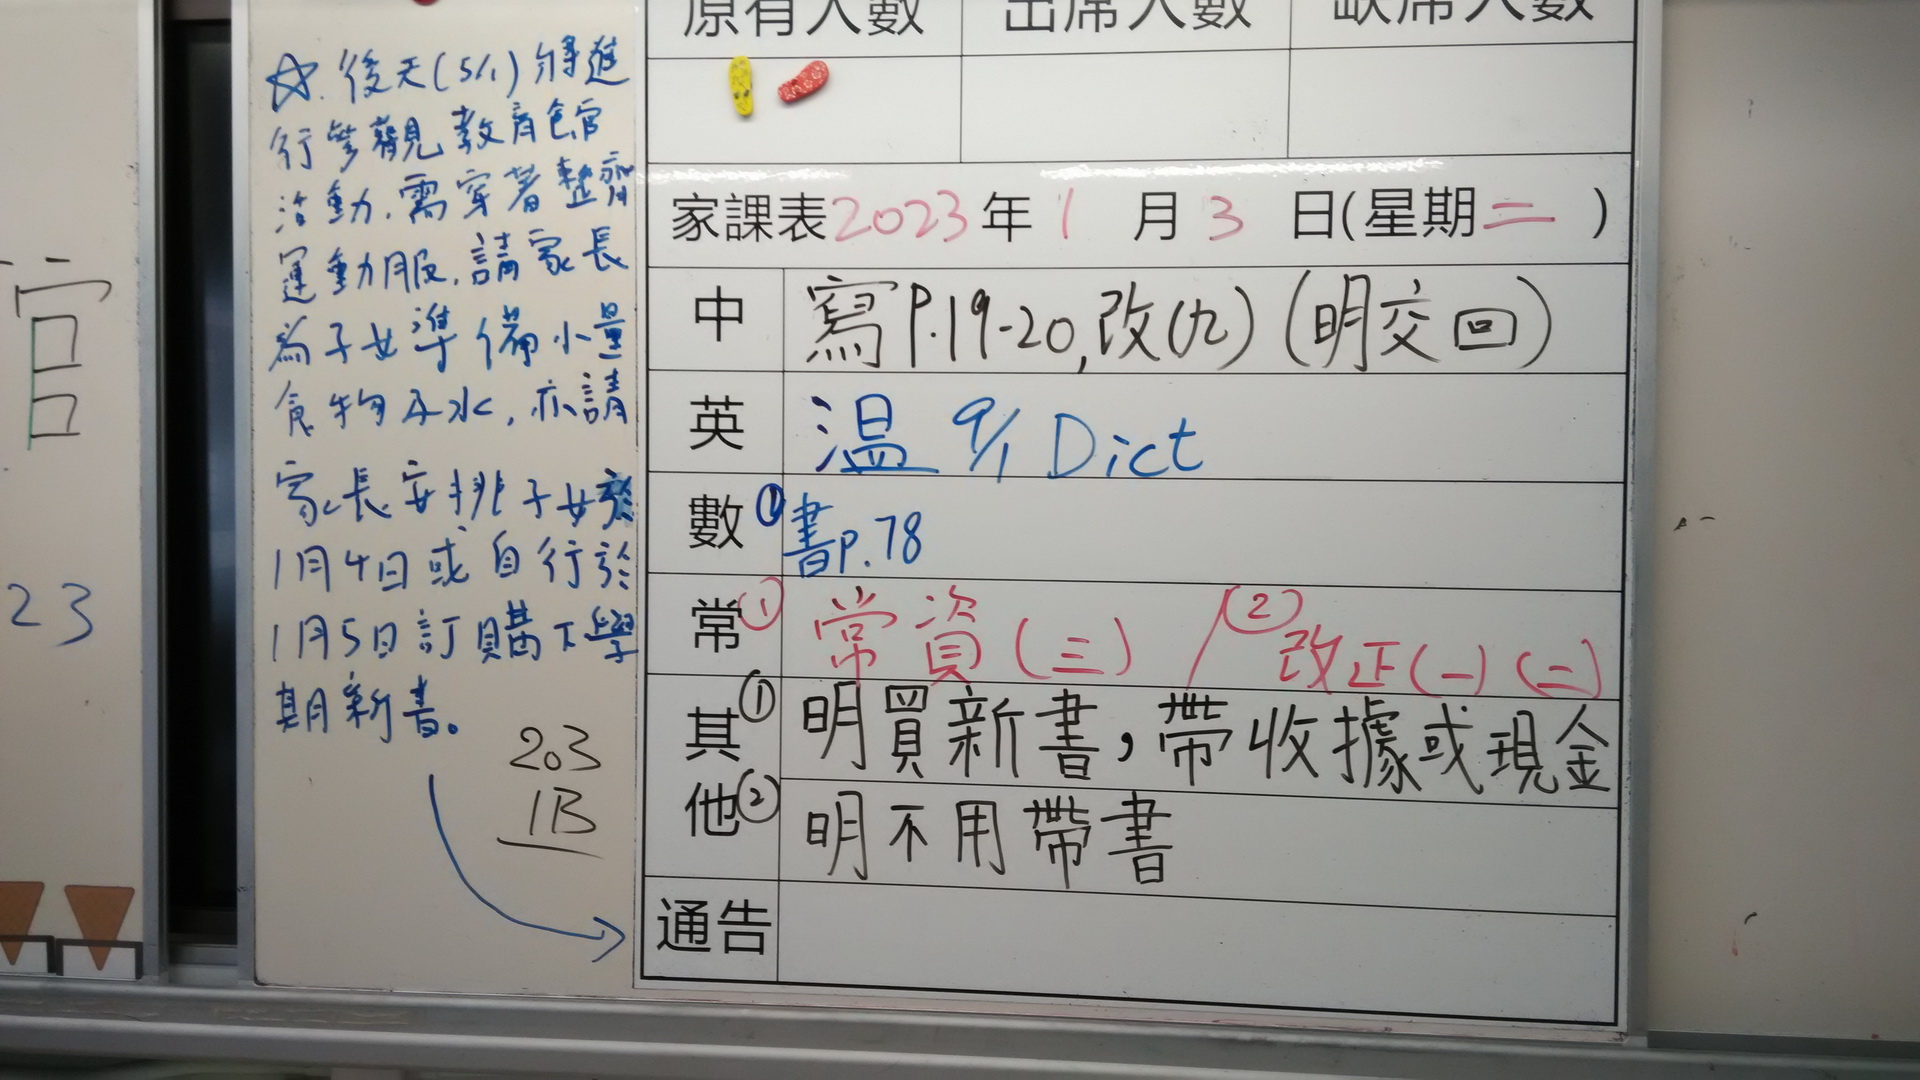 原有人數 出席人數 缺席人數
☆. 後天(5/1)將進
行參觀教育色官
活動，需穿著整齊
運動服，請家長
為子女準備小量
食物及水，亦請
家長安排子女於
1月4日或自行於
1月5日訂購下學
期新書。
203
1B
家課表2023年1月3日(星期二)
中 寫P.19-20,改(九)(明交回)
英 温 9/1 Dict
數 ① 書p.78
常 ① 常資(三) / ② 改正(一)(二)
其他 ① 明買新書，帶收據或現金
② 明不用帶書
通告
官
23